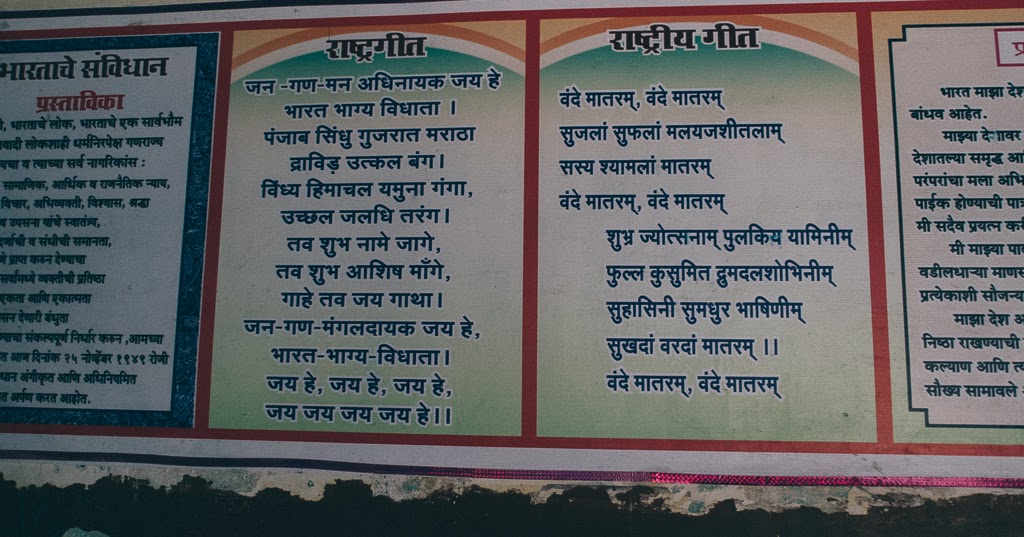 भारताचे संविधान
प्रस्ताविका
भारताचे लोक, भारताचे एक सार्वभौम
लोकशाही धर्मनिरपेक्ष गणराज्य
व त्याच्या सर्व नागरिकांस :
सामाजिक, आर्थिक व राजनैतिक न्याय,
विचार, अभिव्यक्ती, विश्वास, श्रद्धा
व उपसना यांचे स्वातंत्र्य,
व संधीची समानता,
प्राप्त करुन देण्याचा
व्यक्तीची प्रतिष्ठा
एकता आणि एकात्मता
देणारी बंधुता
संकल्पपूर्ण निर्धार करुन ,आमच्या
आज दिनांक २५ नोव्हेंबर १९४९ रोजी
अंगीकृत आणि अधिनियमित
अर्पण करत आहोत.
राष्ट्रगीत
जन -गण-मन अधिनायक जय हे
भारत भाग्य विधाता ।
पंजाब सिंधु गुजरात मराठा
द्राविड़ उत्कल बंग।
विंध्य हिमाचल यमुना गंगा,
उच्छल जलधि तरंग।
तव शुभ नामे जागे,
तव शुभ आशिष माँगे,
गाहे तव जय गाथा।
जन-गण-मंगलदायक जय हे,
भारत-भाग्य-विधाता।
जय हे, जय हे, जय हे,
जय जय जय जय हे।।
राष्ट्रीय गीत
वंदे मातरम्, वंदे मातरम्
सुजलां सुफलां मलयजशीतलाम्
सस्य श्यामलां मातरम्
वंदे मातरम्, वंदे मातरम्
शुभ्र ज्योत्सनाम् पुलकिय यामिनीम्
फुल्ल कुसुमित द्रुमदलशोभिनीम्
सुहासिनी सुमधुर भाषिणीम्
सुखदां वरदां मातरम् ।।
वंदे मातरम्, वंदे मातरम्
भारत माझा देश
बांधव आहेत.
माझ्या देशावर
देशातल्या समृद्ध
परंपरांचा मला
पाईक होण्याची
मी सदैव प्रयत्न
मी माझ्या
वडीलधाऱ्या
प्रत्येकाशी सौजन्या
माझा देश
निष्ठा राखण्याची
कल्याण आणि
सौख्य सामावले